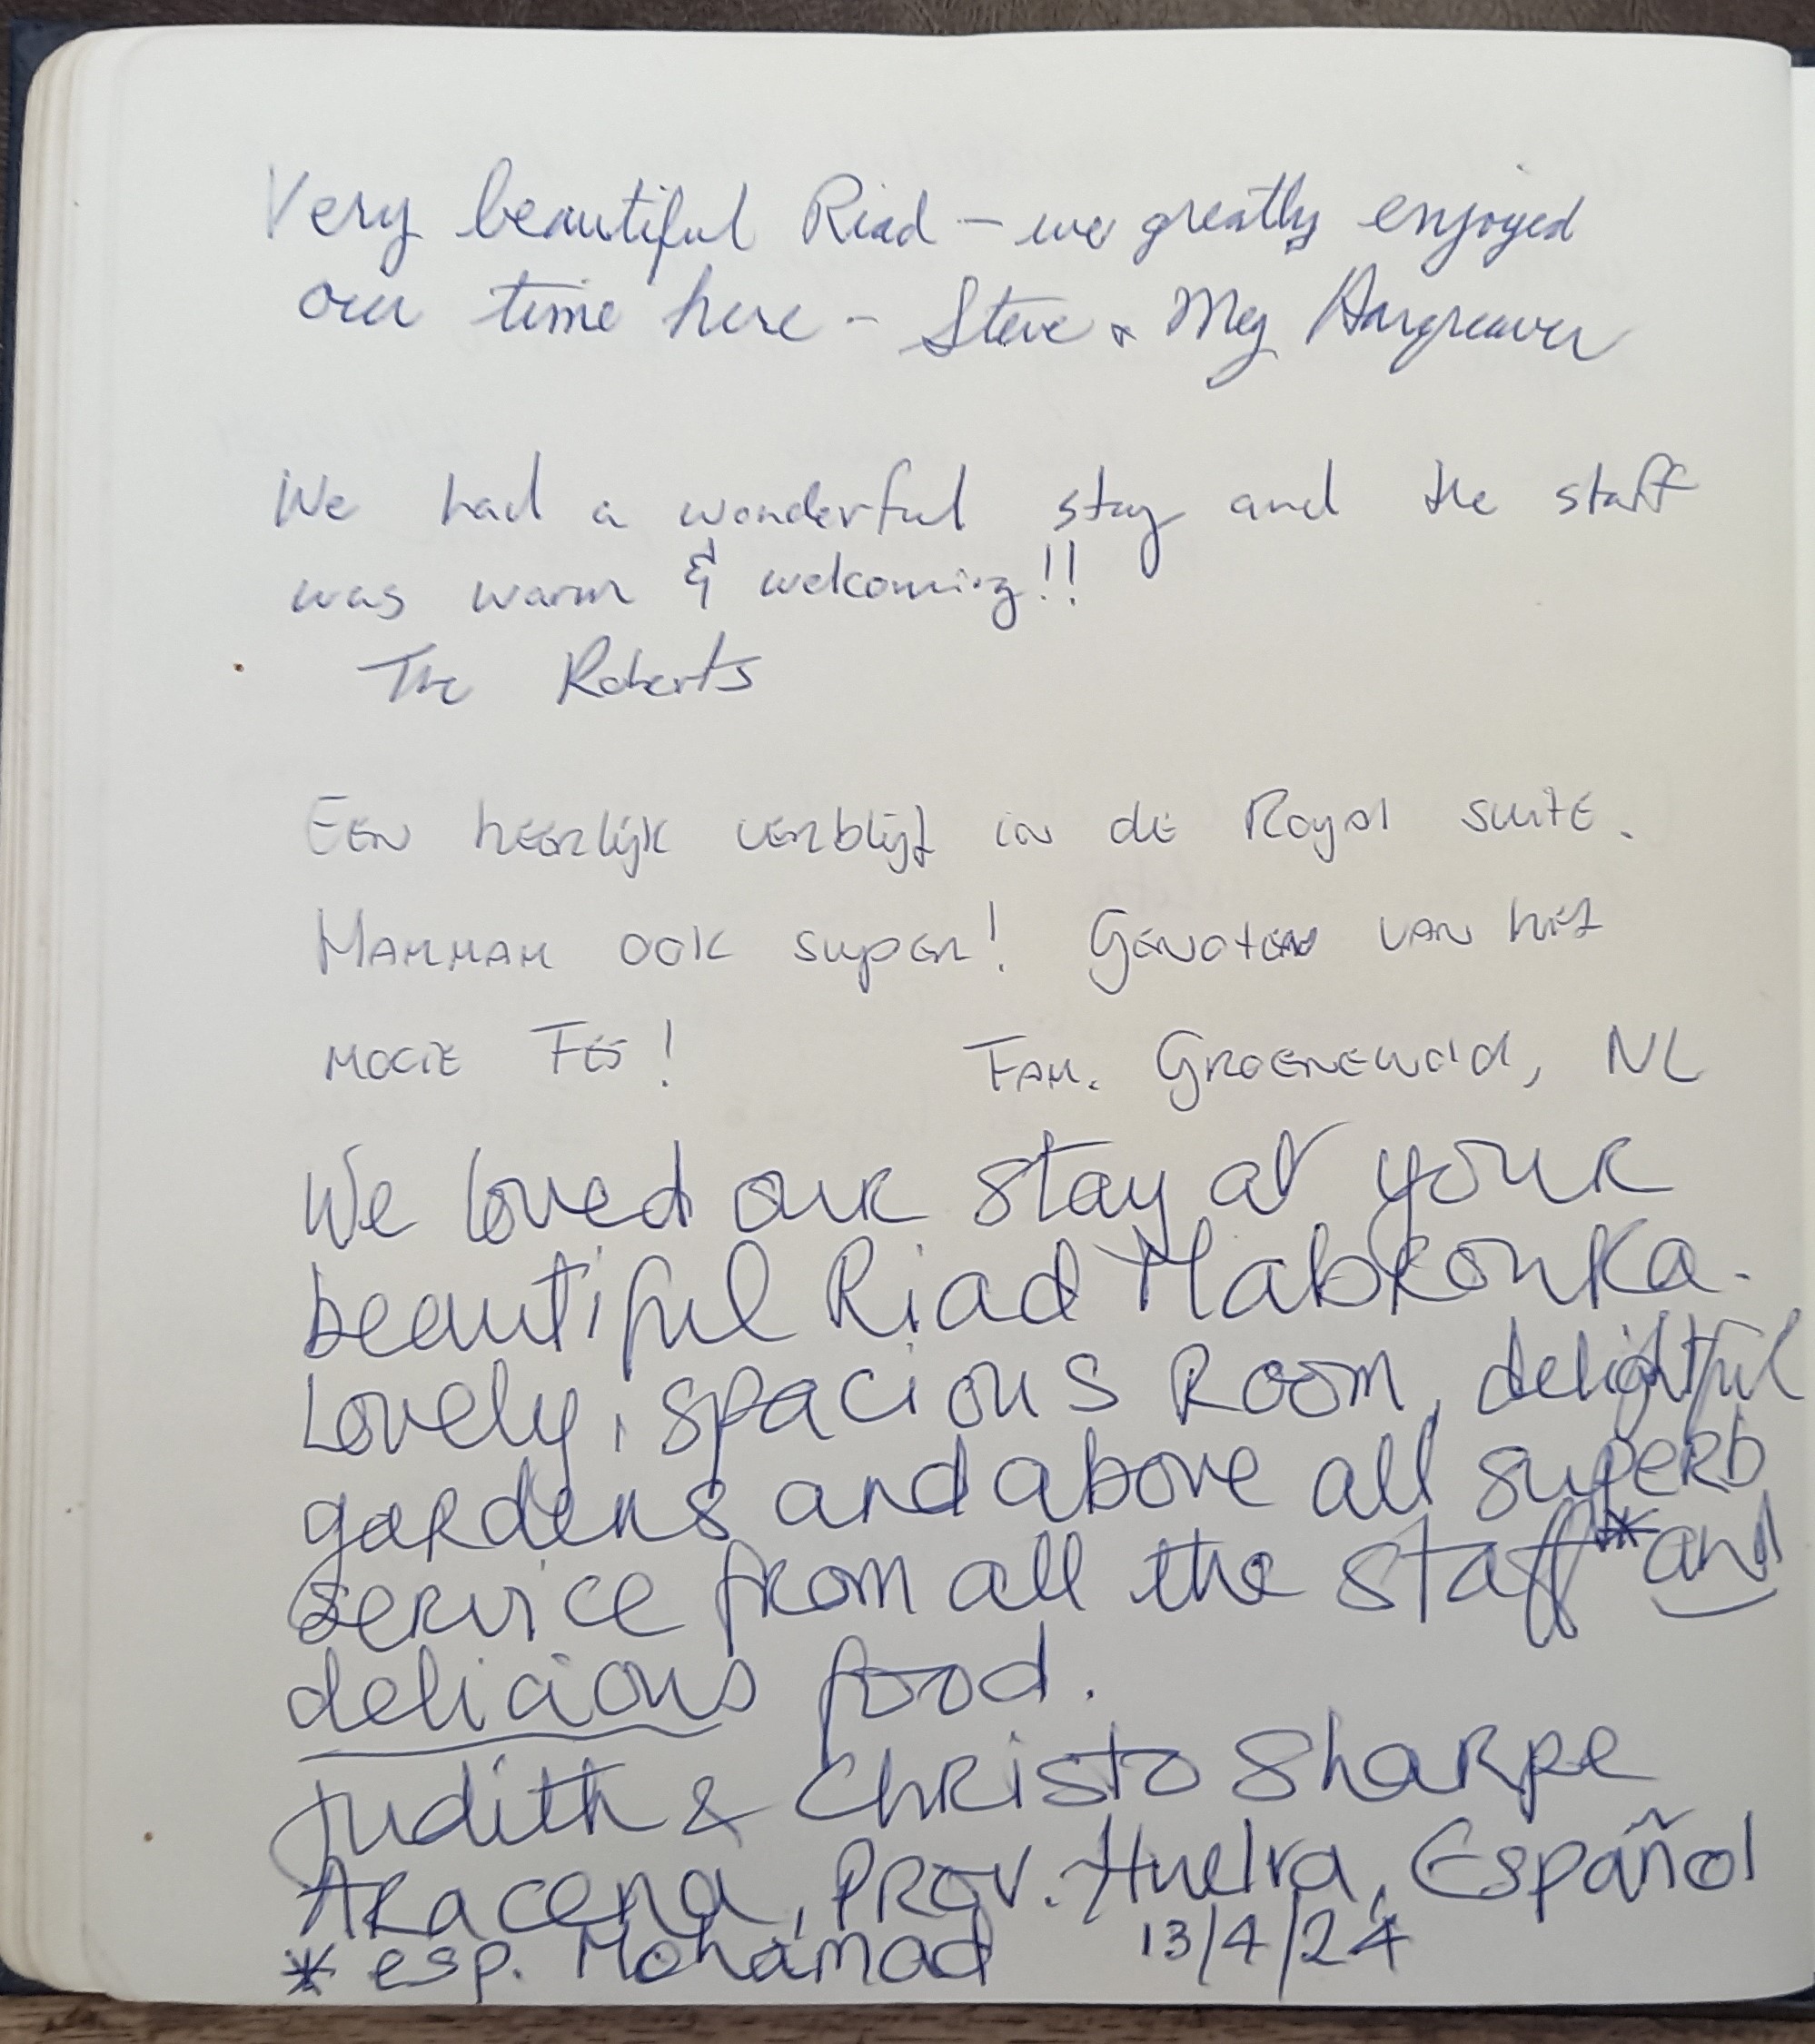 Very beautiful Riad – we greatly enjoyed
our time here – Steve & Meg Hargreaves
We had a wonderful stay and the staff
was warm & welcoming!!
The Roberts
EEN HEERLIJK VERBLIJF in dE Royal suite.
HAMMAM OOK SUPER! GENOTEN VAN HET
MOOIE FES! FAM. GROENEWOLD, NL
We loved our stay at your
beautiful Riad Mabrouka.
Lovely, spacious Room, delightful
gardens and above all superb
service from all the staff* and
delicious food.
Judith & Christo Sharpe
Aracena, Prov. Huelva, Español
* esp. Mohamad 13/4/24